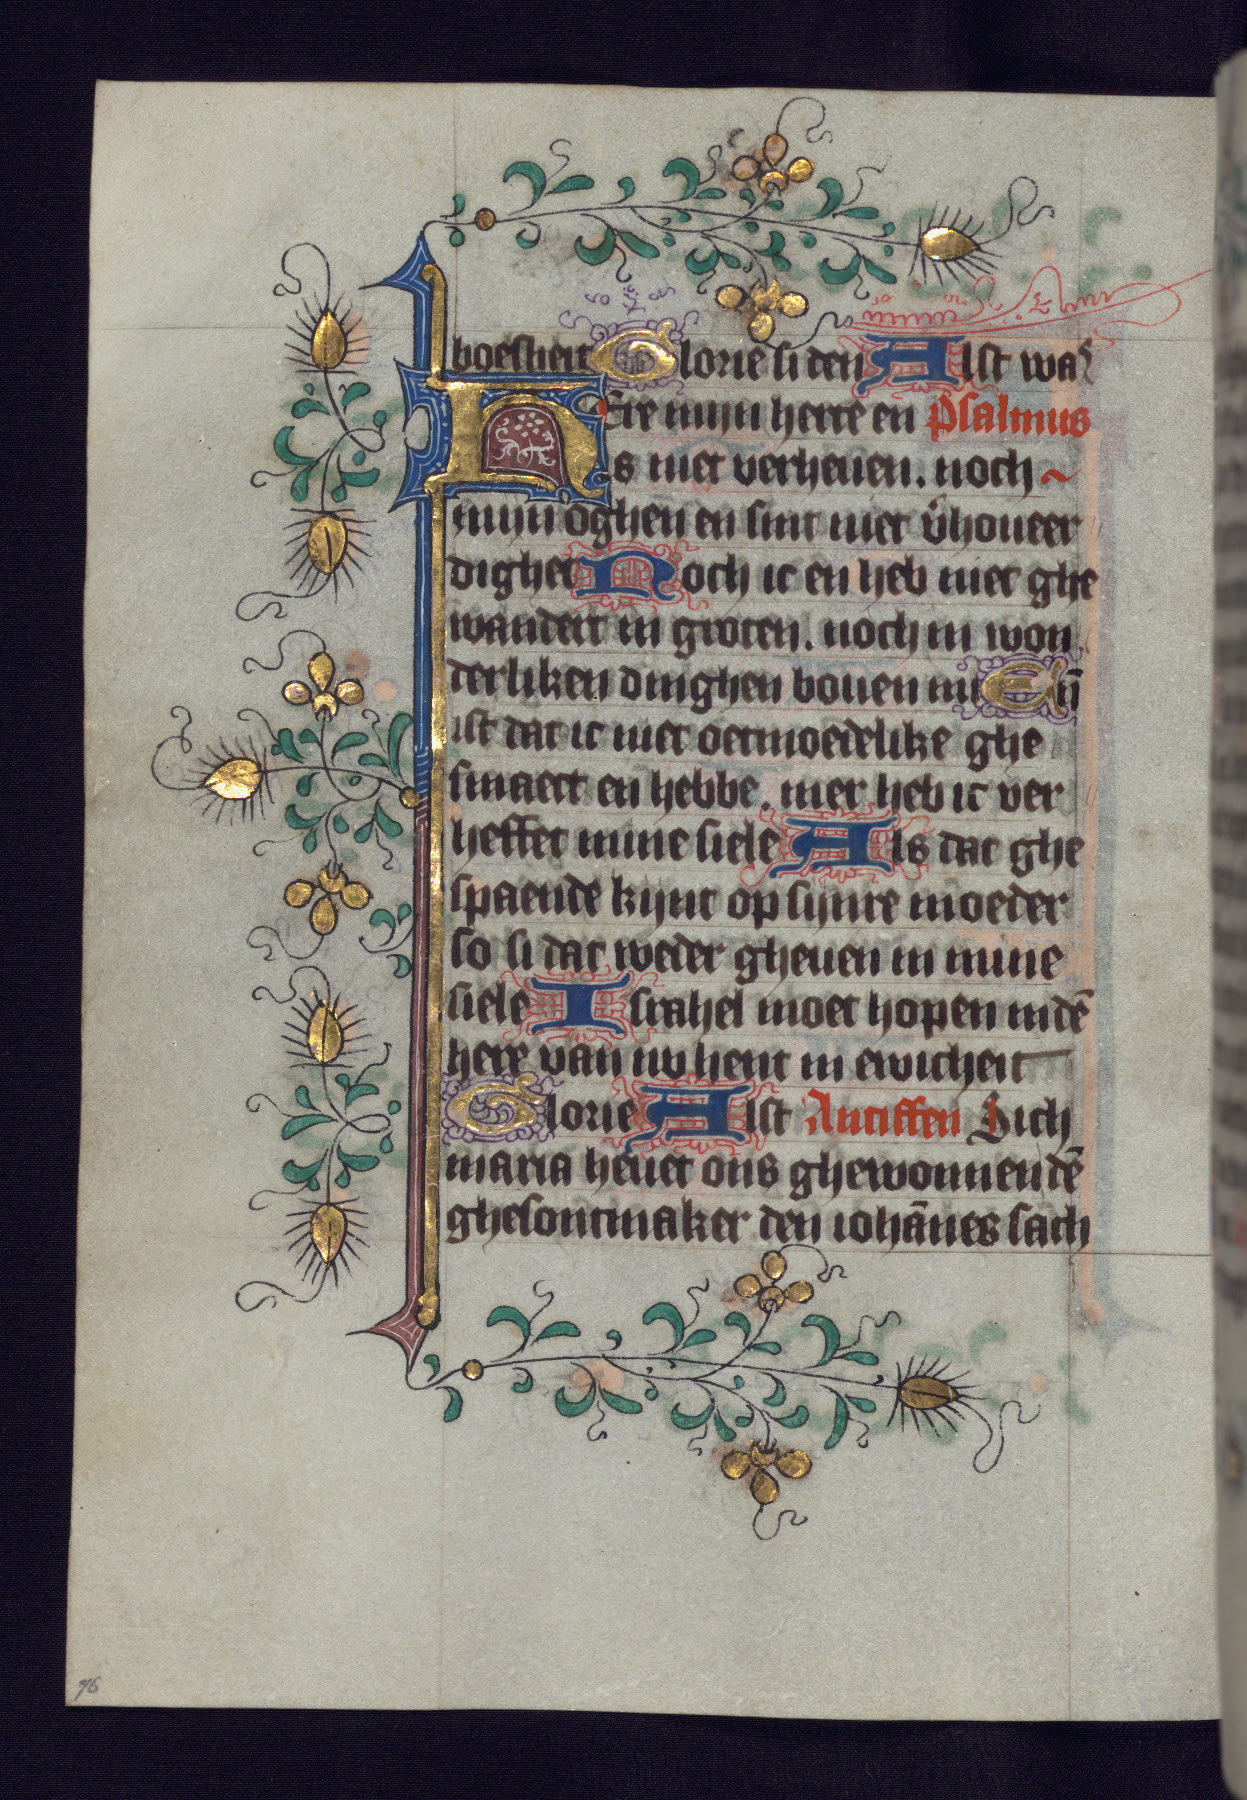 boesheit Glorie si den Alst was
Here mijn herte en Psalmus
is niet verheuen. noch ~
mijn oghen en sint niet v̄houeer
dighet Noch ic en heb niet ghe
wandert in groten. noch in won
derliken dinghen bouen mi Eñ
ist dat ic niet oetmoedelike ghe
sinnett en hebbe. mer heb ic ver
heffet mine siele Als dat ghe
spaende kijnt op sijnre moeder
so si dat weder gheuen in mine
siele Israhel moet hopen in dē
here van nv hent in ewicheit
Glorie Alst Antiffen Sich
maria heuet ons ghewonnen dē
ghesontmaker den iohānes sach
76